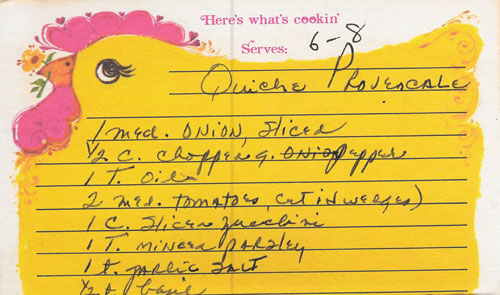 Here's what's cookin'
Serves: 6-8
Quiche Provencale
1 med. onion, sliced
1/2 c. chopped g. pepper
1 T. oil
2 med. tomatoes, cut in wedges)
1 C. sliced zucchini
1 T. minced parsley
1 t. garlic salt
1/2 t. basil